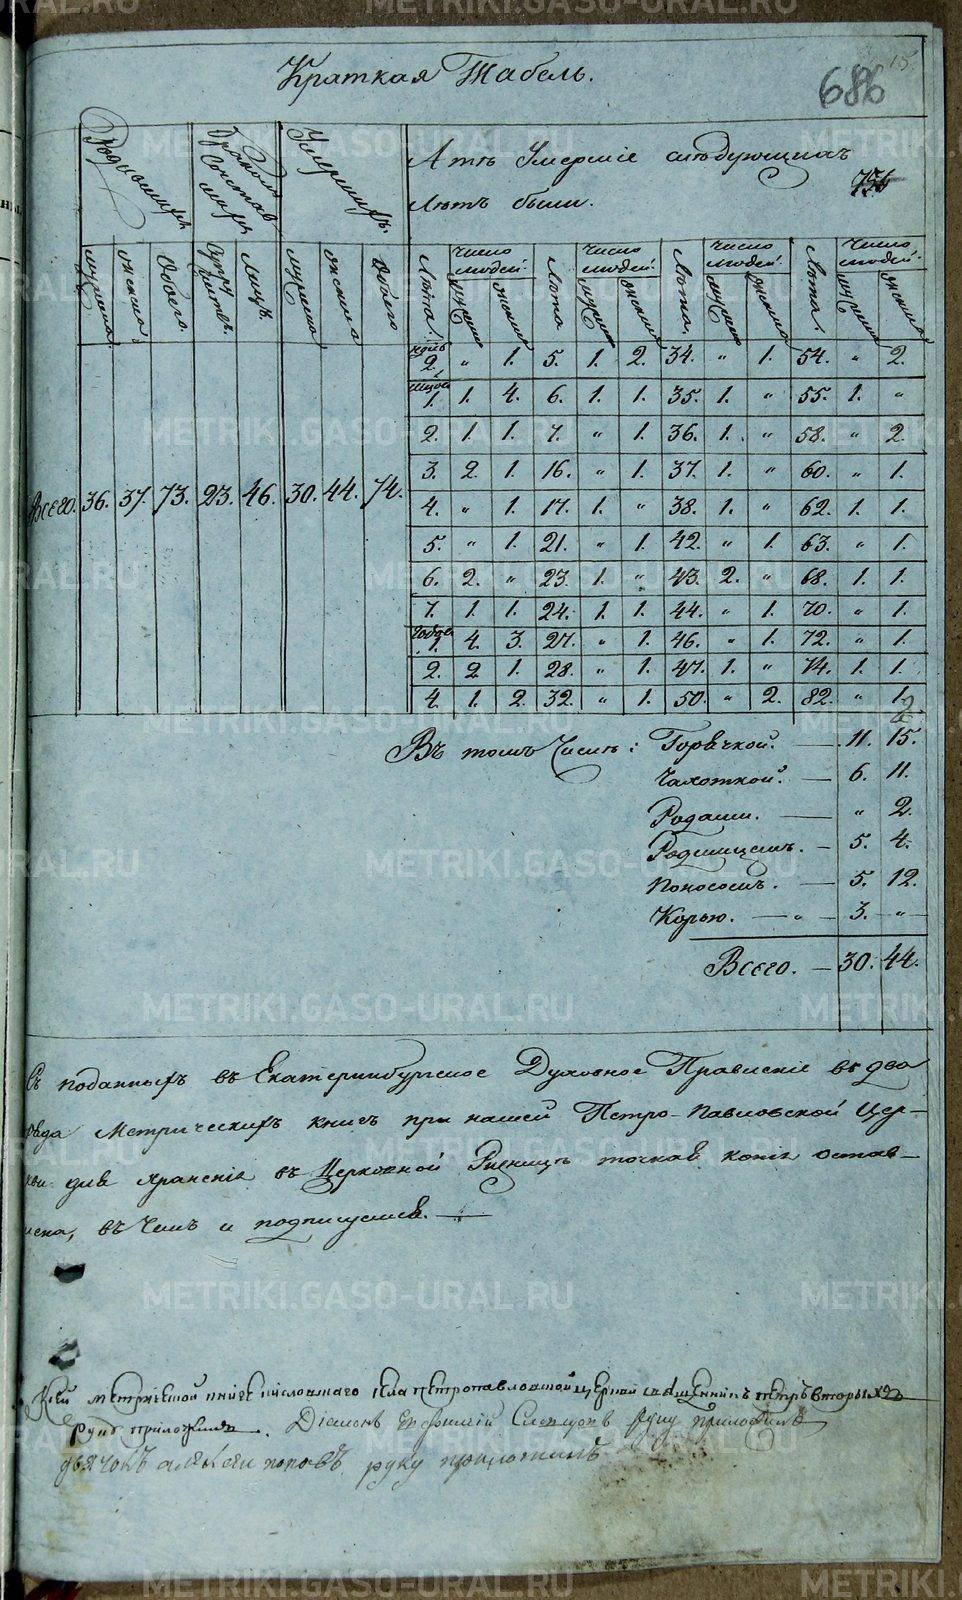 Краткая Табель.
686
Родившихся
Бракомъ Сочетавшихся
Умершихъ.
А тѣ Умершіе слѣдующихъ
Лѣтъ были.
мужеска. женска. Обоего. Супружествъ. Лицъ. мужеска женска обоего
Лѣта. Число людей. мужеска женска Лѣта Число людей. мужеска женска Лѣта. Число людей мужеска женска Лѣта. Число людей. мужеска женска
2. „ 1. 5. 1. 2. 34. „ 1. 54. „ 2.
1. 1. 4. 6. 1. 1. 35. 1. „ 55. 1. „
2. 1. 1. 7. „ 1. 36. 1. „ 58. „ 2.
3. 2. 1. 16. „ 1. 37. 1. „ 60. „ 1.
Всего. 36. 37. 73. 23. 46. 30. 44. 74.
4. „ 1. 17. 1. „ 38. 1. „ 62. 1. 1.
5. „ 1. 21. „ 1. 42. „ 1. 63. „ 1.
6. 2. „ 23. 1. „ 43. 2. „ 68. 1. 1.
7. 1. 1. 24. 1. 1. 44. „ 1. 70. „ 1.
Годов. 1. 4. 3. 27. „ 1. 46. „ 1. 72. „ 1.
2. 2 1. 28. „ 1. 47. 1. „ 74. 1. 1.
4. 1. 2. 32. „ 1. 50. „ 2. 82. „ 1.
Въ томъ Числѣ: Горячкой. — 11. 15.
Чахоткой. — 6. 11.
Родами. — „ 2.
Родимцемъ. — 5. 4.
Поносомъ. — 5. 12.
Корью. — „ — 3. — „ —
Всего. — 30. 44.
Съ поданныхъ въ Екатеринбургское Духовное Правленіе въ два
ряда Метрическихъ книгъ при нашей Петро-Павловской Цер-
кви для храненія въ Церковной Ризницѣ точная копія остав-
лена, въ Чемъ и подписуемся. —
Сей метрической книге села петропавловской церкви священникъ петръ
руку приложилъ. Діаконъ Евфимій Слепцовъ руку приложилъ
дьячокъ алексеи поповъ руку приложилъ
METRIKI.GASO-URAL.RU